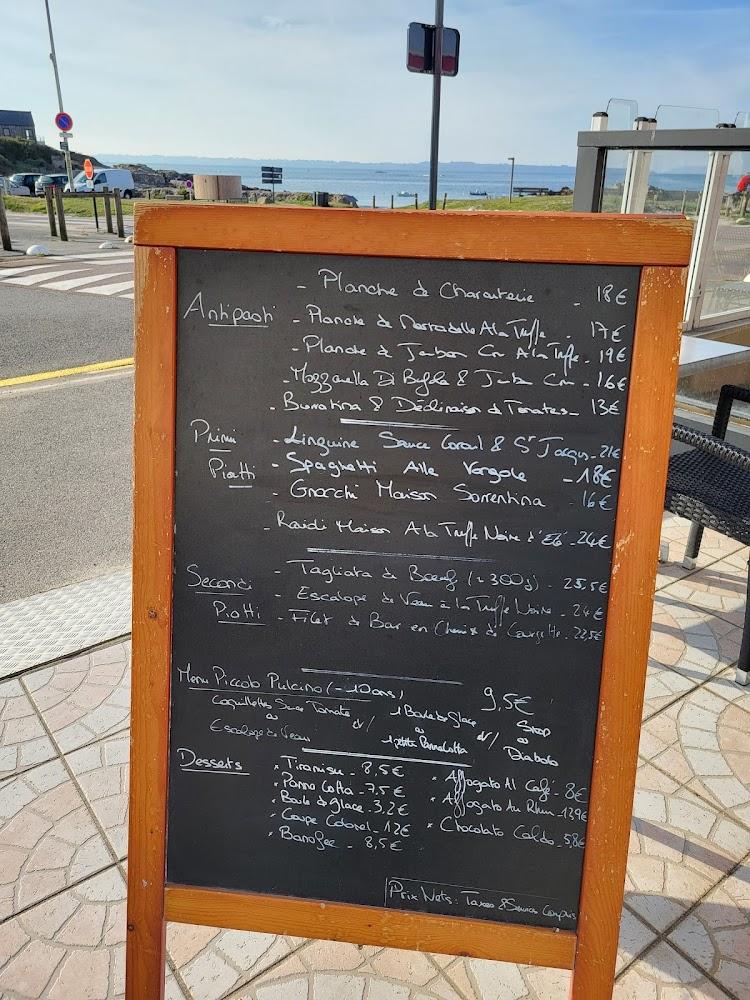 - Planche de Charcuterie - 18€
Antipasti - Planche de Mortadelle A la Truffe - 17€
- Planche de Jambon Cru A la Truffe - 19€
- Mozzarella Di Bufala & Jambon Cru - 16€
- Burratina & Déclinaison de Tomates - 13€
Primi - Linguine Sauce Corail & St Jacques - 21€
Piatti - Spaghetti Alle Vongole - 18€
- Gnocchi Maison Sorrentina 16€
- Ravioli Maison A la Truffe Noire d'Eté - 24€
Secondi - Tagliata de Boeuf (~300g) - 25,5€
Piatti - Escalope de Veau à la Truffe Noire - 24€
- Filet de Bar en Chemise de Courgette - 22,5€
Menu Piccolo Pulcino (-10ans) 9,5€
Coquillettes Sauce Tomate ou Escalope de Veau
et/ 1 Boule de Glace ou 1 petite Panna Cotta
et/ Sirop ou Diabolo
Desserts
* Tiramisu - 8,5€
* Panna Cotta - 7,5€
* Boule de glace - 3,2€
* Coupe Colonel - 12€
* Banofee - 8,5€
* Affogato Al Café - 8€
* Affogato Au Rhum - 13,9€
* Chocolato Caldo - 5,8€
Prix Nets: Taxes & Services Compris